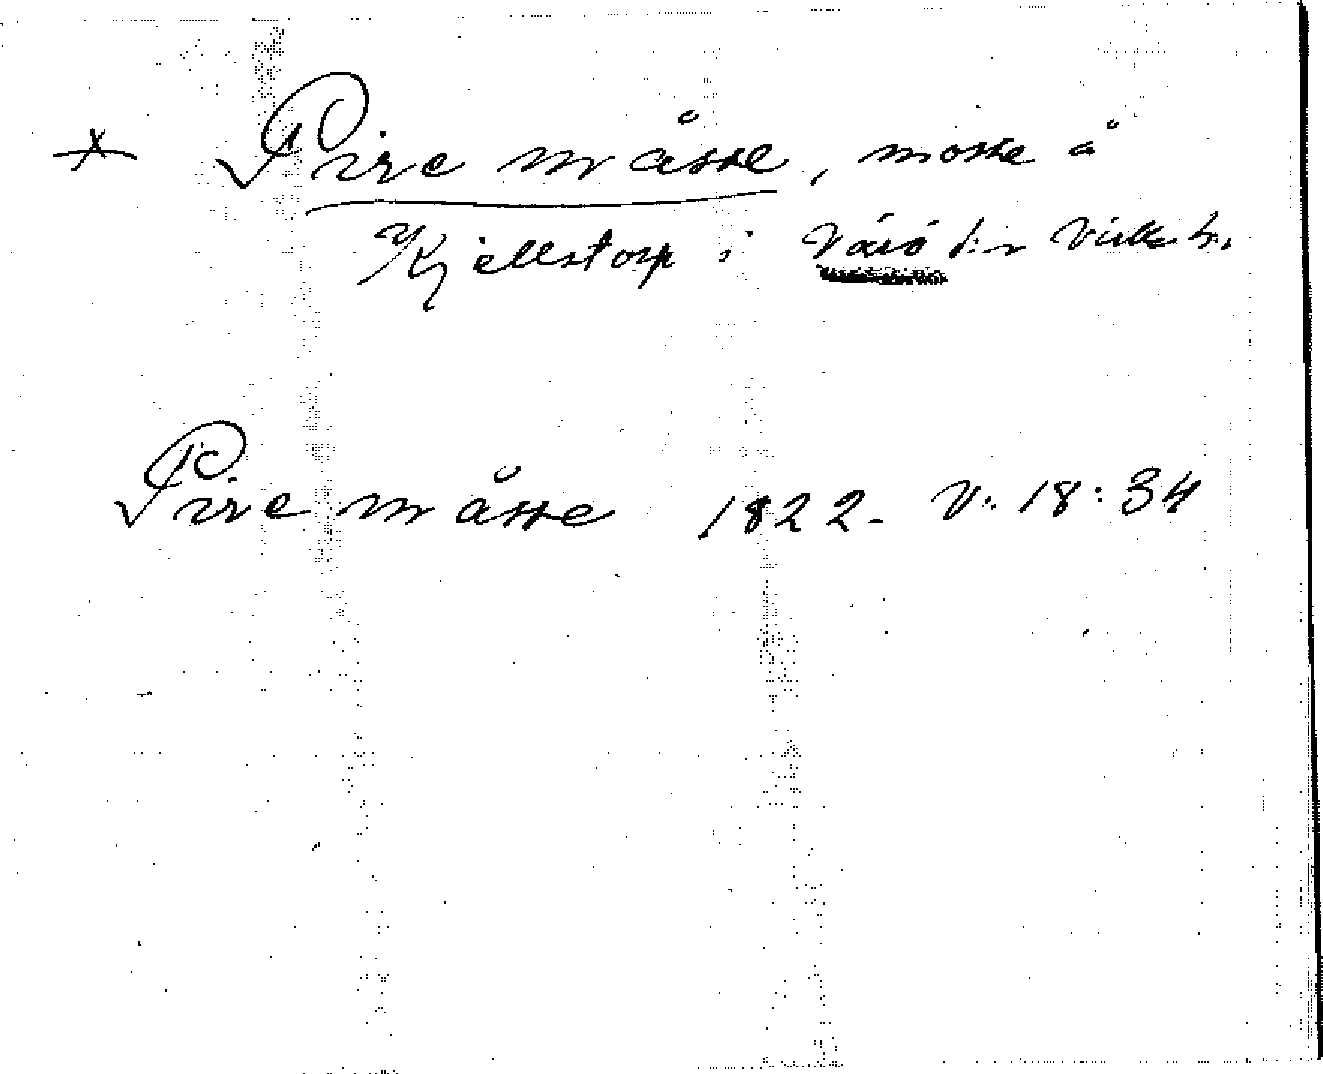 Pire måsse, mosse å
Kjellstorp i Värö s:n Viske h:
Pire måsse 1822. V: 18: 34